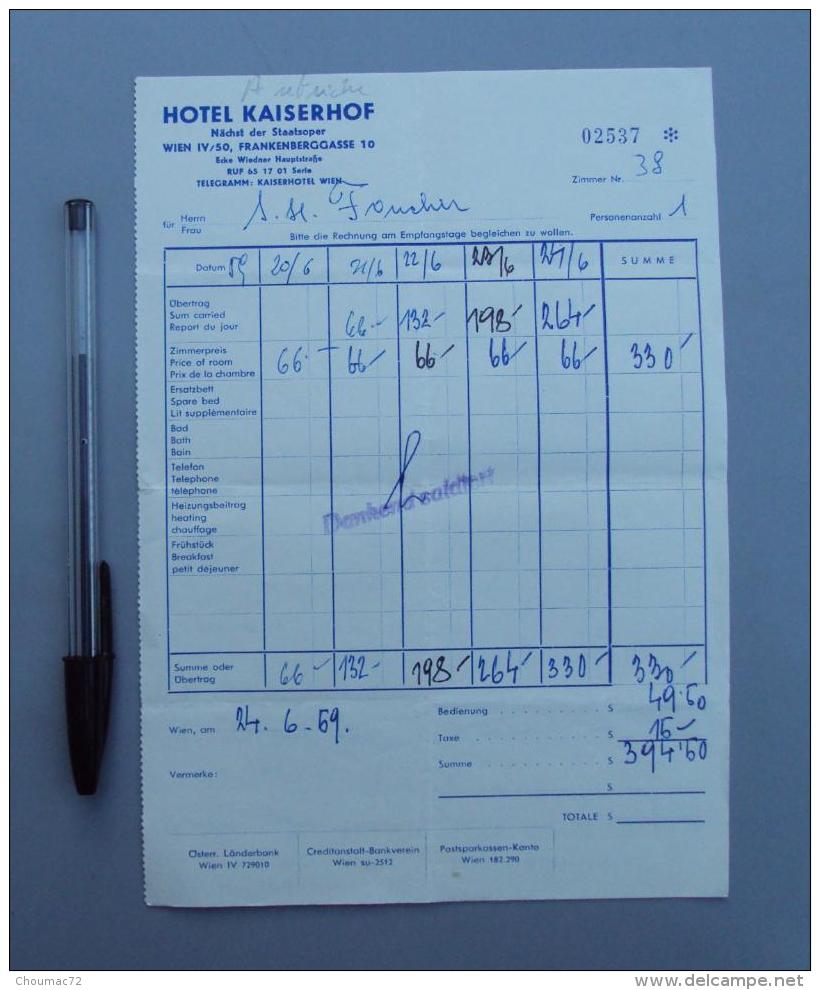 Autriche
HOTEL KAISERHOF
Nächst der Staatsoper
WIEN IV/50, FRANKENBERGGASSE 10
Ecke Wiedner Hauptstraße
RUF 65 17 01 Serie
TELEGRAMM: KAISERHOTEL WIEN
02537 ✻
Zimmer Nr. 38
für Herrn Frau Foucher
Personenanzahl 1
Bitte die Rechnung am Empfangstage begleichen zu wollen.
Datum 59 20/6 21/6 22/6 23/6 24/6 SUMME
Übertrag
Sum carried
Report du jour 66.- 132- 198- 264-
Zimmerpreis
Price of room 66.- 66- 66- 66- 66- 330-
Prix de la chambre
Ersatzbett
Spare bed
Lit supplémentaire
Bad
Bath
Bain
Telefon
Telephone
téléphone
Heizungsbeitrag
heating
chauffage
Dankend saldiert
Frühstück
Breakfast
petit déjeuner
Summe oder
Übertrag 66- 132- 198- 264- 330- 330-
Bedienung . . . . . . . . . . S 49.50
Wien, am 24. 6. 59.
Taxe . . . . . . . . . . . . S 15-
Summe . . . . . . . . . . . S 394'50
Vermerke:
S
TOTALE S
Österr. Länderbank
Wien IV 729010
Creditanstalt-Bankverein
Wien su-2512
Postsparkassen-Konto
Wien 182.290
Choumac72
www.delcampe.net